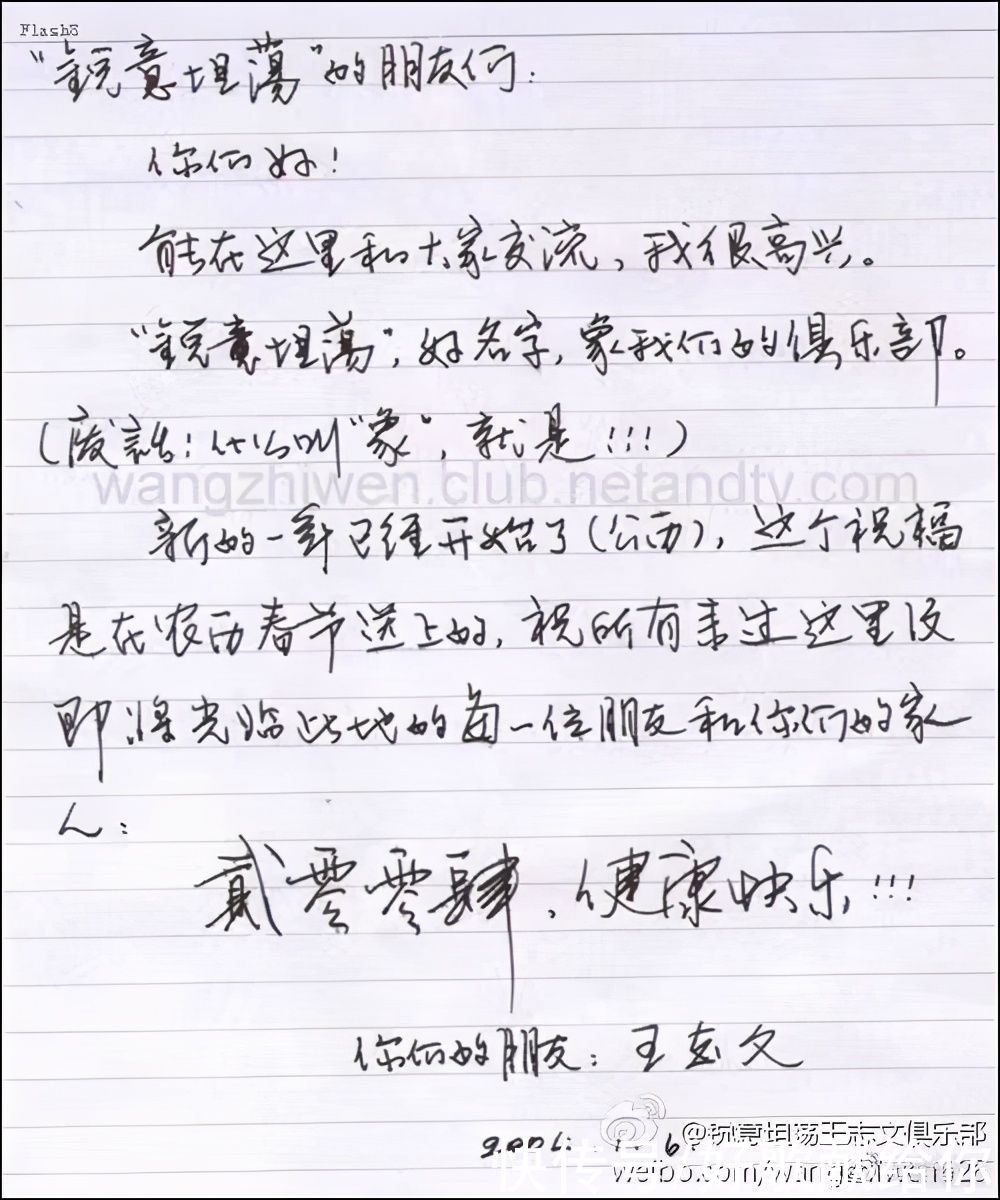 Flash8
“銳意坦蕩”的朋友们：
你们好！
能在这里和大家交流，我很高兴。
“銳意坦蕩”，好名字，象我们的俱乐部。
（废話！什么叫“象”，就是！！！）
wangzhiwen.club.netandtv.com
新的一年已经开始了（公历），这个祝福
是在农历春节送上的，祝所有来过这里没
即将光临此地的每一位朋友和你们的家
人：
貳零零肆，健康快乐！！！
你们的朋友：王志文
2004. 1. 6
@锐意坦荡王志文俱乐部
快传号
weibo.com/wangzhiwen926